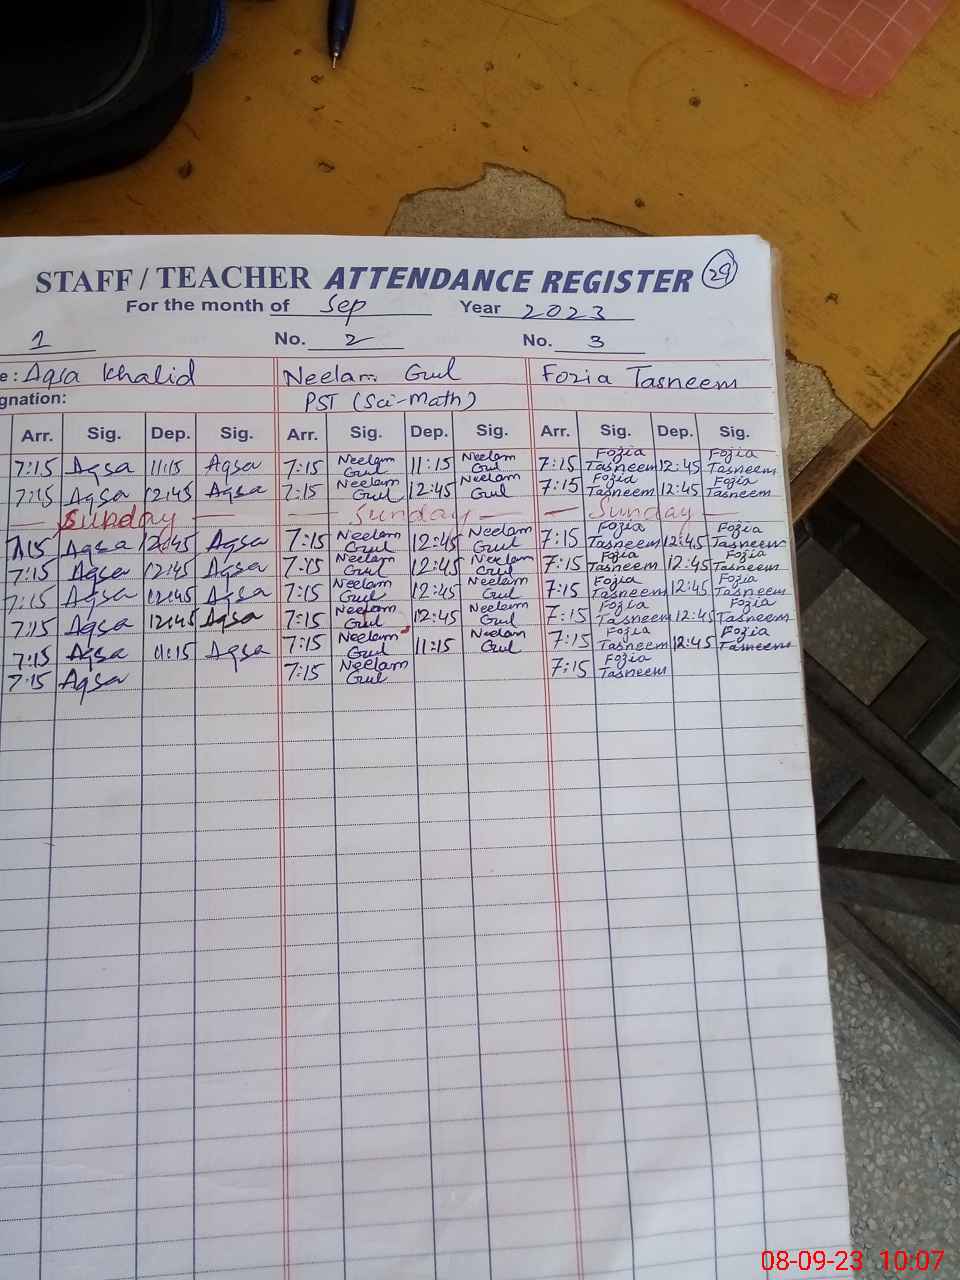 STAFF / TEACHER ATTENDANCE REGISTER 29
For the month of Sep Year 2023
1 No. 2 No. 3
e : Aqsa Khalid Neelam Gul Fozia Tasneem
gnation: PST (Sci-Math)
Arr. Sig. Dep. Sig. Arr. Sig. Dep. Sig. Arr. Sig. Dep. Sig.
7:15 Aqsa 11:15 Aqsa 7:15 Neelam Gul 11:15 Neelam Gul 7:15 Fozia Tasneem 12:45 Fozia Tasneem
7:15 Aqsa 12:45 Aqsa 7:15 Neelam Gul 12:45 Neelam Gul 7:15 Fozia Tasneem 12:45 Fozia Tasneem
— Sunday — — Sunday — — Sunday —
7:15 Aqsa 12:45 Aqsa 7:15 Neelam Gul 12:45 Neelam Gul 7:15 Fozia Tasneem 12:45 Fozia Tasneem
7:15 Aqsa 12:45 Aqsa 7:15 Neelam Gul 12:45 Neelam Gul 7:15 Fozia Tasneem 12:45 Fozia Tasneem
7:15 Aqsa 12:45 Aqsa 7:15 Neelam Gul 12:45 Neelam Gul 7:15 Fozia Tasneem 12:45 Fozia Tasneem
7:15 Aqsa 12:45 Aqsa 7:15 Neelam Gul 12:45 Neelam Gul 7:15 Fozia Tasneem 12:45 Fozia Tasneem
7:15 Aqsa 11:15 Aqsa 7:15 Neelam Gul 11:15 Neelam Gul 7:15 Fozia Tasneem 12:45 Fozia Tasneem
7:15 Aqsa 7:15 Neelam Gul 7:15 Fozia Tasneem
08-09-23 10:07